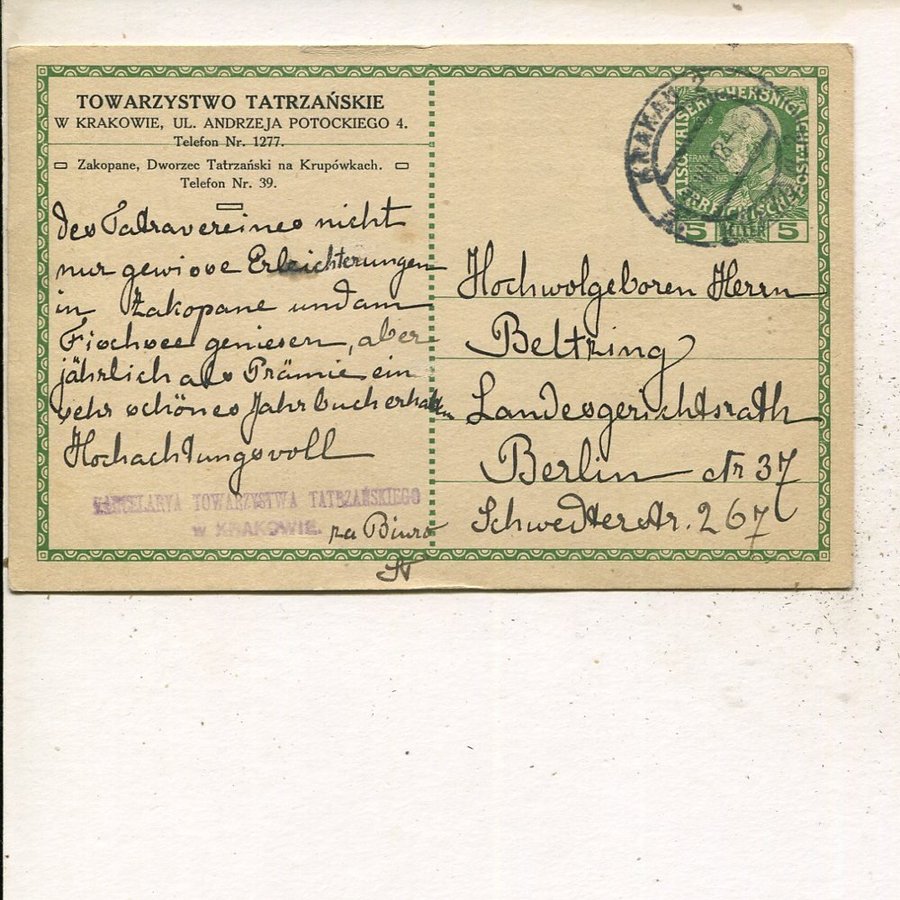 TOWARZYSTWO TATRZAŃSKIE
W KRAKOWIE, UL. ANDRZEJA POTOCKIEGO 4.
Telefon Nr. 1277.
Zakopane, Dworzec Tatrzański na Krupówkach.
Telefon Nr. 39.
des Tatravereines nicht
nur gewisse Erleichterungen
in Zakopane und am
Fischsee geniesen, aber
jährlich als Prämie ein
sehr schönes Jahrbuch erhalten
Hochachtungsvoll
KANCELARYA TOWARZYSTWA TATRZAŃSKIEGO
W KRAKOWIE.
za Biuro
KRAKAU 2
5 5
Hochwolgeboren Herrn
Beltzing
Landesgerichtsrath
Berlin Nr 37
Schwedterstr. 267